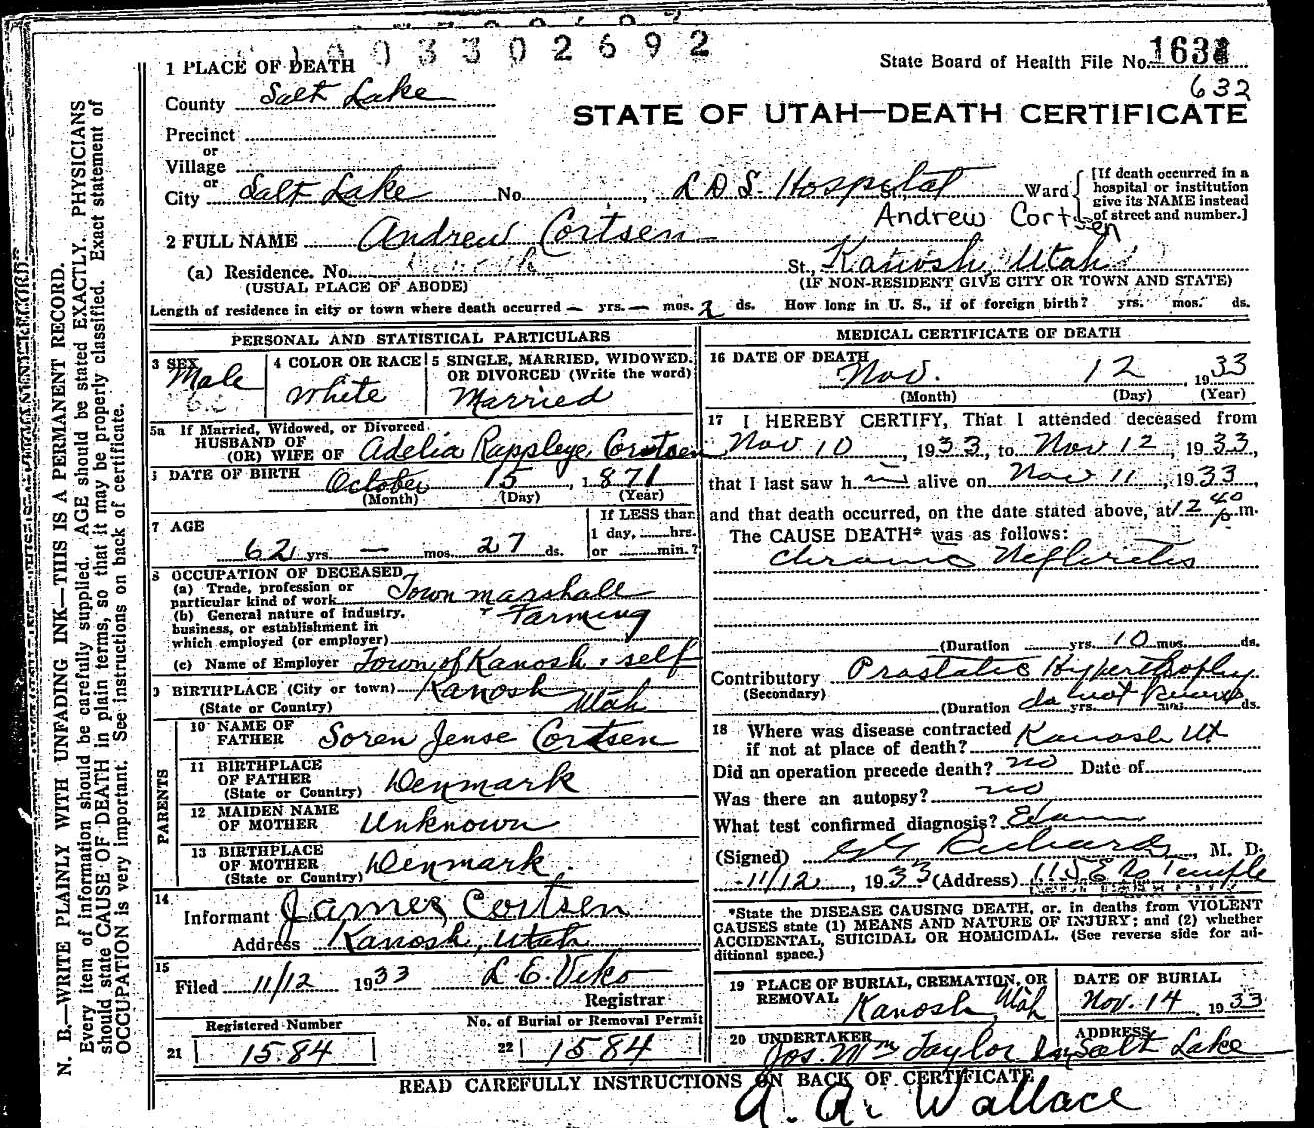 0 0 3 3 0 2 6 9 2
State Board of Health File No. 1631
632
STATE OF UTAH—DEATH CERTIFICATE
1 PLACE OF DEATH
County Salt Lake
Precinct
or
Village
or
City Salt Lake No. L.D.S. Hospital Ward
[If death occurred in a
hospital or institution
give its NAME instead
of street and number.]
Andrew Cortsen
2 FULL NAME Andrew Cortsen
(a) Residence. No. St., Kanosh, Utah
(USUAL PLACE OF ABODE) (IF NON-RESIDENT GIVE CITY OR TOWN AND STATE)
Length of residence in city or town where death occurred — yrs. — mos. 2 ds. How long in U. S., if of foreign birth? yrs. mos. ds.
PERSONAL AND STATISTICAL PARTICULARS
3 SEX Male
4 COLOR OR RACE White
5 SINGLE, MARRIED, WIDOWED.
OR DIVORCED (Write the word)
Married
5a If Married, Widowed, or Divorced
HUSBAND OF
(OR) WIFE OF Adelia Rappleye Cortsen
DATE OF BIRTH October 15, 1871
(Month) (Day) (Year)
7 AGE
62 yrs. — mos. 27 ds.
If LESS than
1 day, hrs.
or min.?
8 OCCUPATION OF DECEASED
(a) Trade, profession or
particular kind of work Town marshall
(b) General nature of industry, + Farming
business, or establishment in
which employed (or employer)
(c) Name of Employer Town of Kanosh + self
9 BIRTHPLACE (City or town) Kanosh
(State or Country) Utah
PARENTS
10 NAME OF
FATHER Soren Jense Cortsen
11 BIRTHPLACE
OF FATHER Denmark
(State or Country)
12 MAIDEN NAME
OF MOTHER Unknown
13 BIRTHPLACE
OF MOTHER Denmark.
(State or Country)
14
Informant James Cortsen
Address Kanosh, Utah
15
Filed 11/12 1933 L. E. Viko
Registrar
Registered Number
21 1584
No. of Burial or Removal Permit
22 1584
MEDICAL CERTIFICATE OF DEATH
16 DATE OF DEATH
Nov. 12, 1933
(Month) (Day) (Year)
17 I HEREBY CERTIFY, That I attended deceased from
Nov 10, 1933, to Nov 12, 1933,
that I last saw h im alive on Nov 11, 1933,
and that death occurred, on the date stated above, at 12 40 p m.
The CAUSE DEATH* was as follows:
Chronic Nefhritis
(Duration yrs. 10 mos. ds.
Contributory Prostatic Hyperthophy
(Secondary)
(Duration do not know yrs. mos. ds.
18 Where was disease contracted
if not at place of death? Kanosh Ut
Did an operation precede death? no Date of
Was there an autopsy? no
What test confirmed diagnosis? Exam
(Signed) G G Richards, M. D.
11/12, 1933 (Address) 115 E So Temple
*State the DISEASE CAUSING DEATH, or, in deaths from VIOLENT
CAUSES state (1) MEANS AND NATURE OF INJURY; and (2) whether
ACCIDENTAL, SUICIDAL OR HOMICIDAL. (See reverse side for ad-
ditional space.)
19 PLACE OF BURIAL, CREMATION, OR
REMOVAL Kanosh, Utah
DATE OF BURIAL
Nov. 14 1933
20 UNDERTAKER
Jos. Wm Taylor
ADDRESS
Salt Lake
READ CAREFULLY INSTRUCTIONS ON BACK OF CERTIFICATE
A. A. Wallace
N. B.—WRITE PLAINLY WITH UNFADING INK—THIS IS A PERMANENT RECORD.
Every item of information should be carefully supplied. AGE should be stated EXACTLY. PHYSICIANS
should state CAUSE OF DEATH in plain terms, so that it may be properly classified. Exact statement of
OCCUPATION is very important. See instructions on back of certificate.